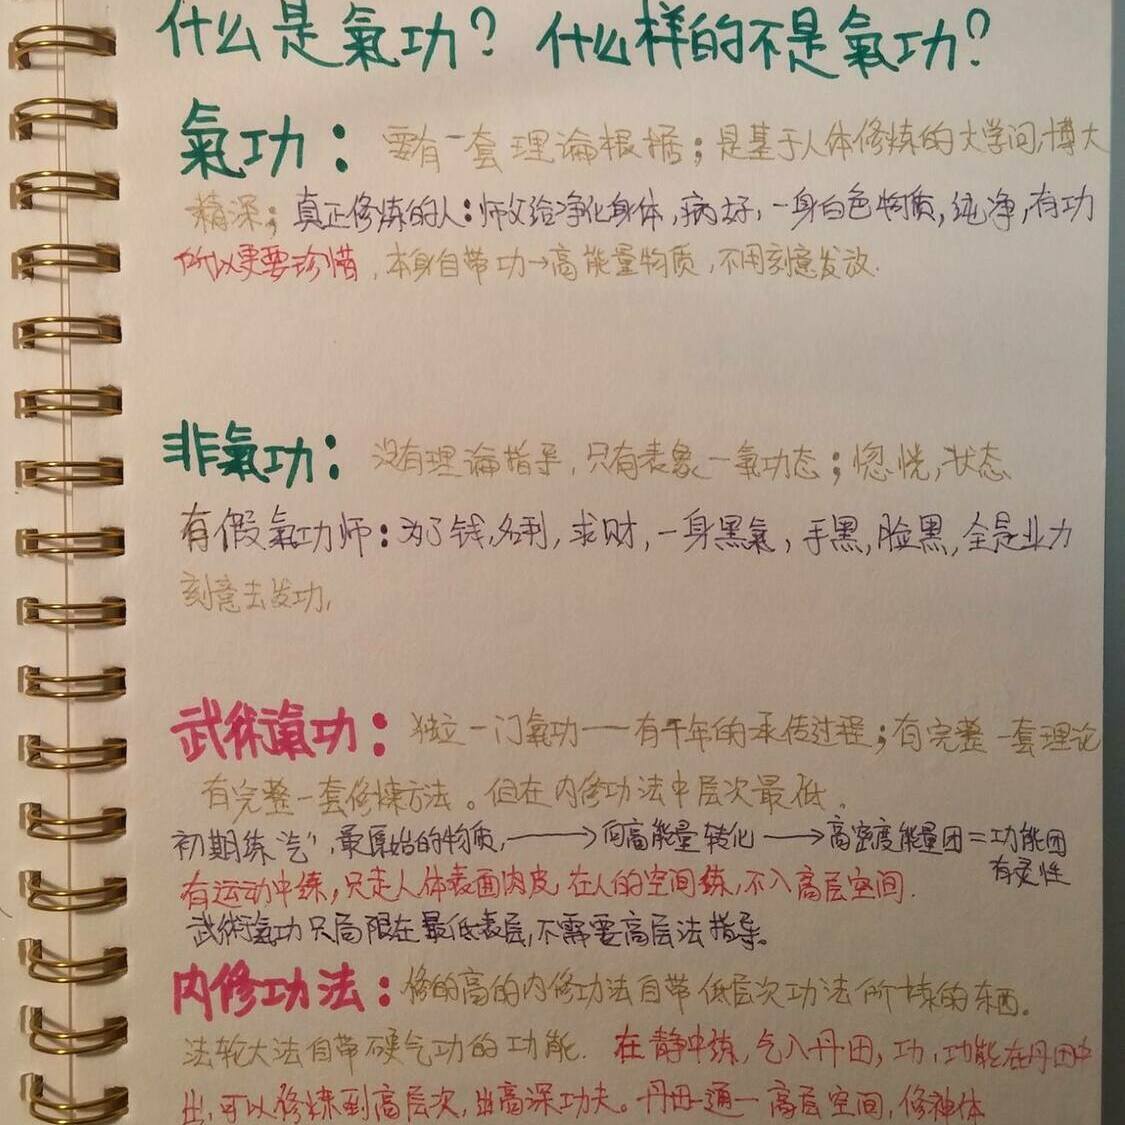 什么是氣功？ 什么样的不是氣功？
氣功：要有一套理論根据；是基于人体修炼的大学问,博大
精深；真正修炼的人：师父给净化身体,病好,一身白色物质,纯净,有功
所以更要珍惜,本身自带功→高能量物质,不用刻意发放.
非氣功：没有理論指导,只有表象一氣功态；惚恍,状态
有假氣功师：为了钱,名利,求财,一身黑氣,手黑,脸黑,全是业力
刻意去发功,
武術氣功：独立一门氣功——有千年的承传过程；有完整一套理论
有完整一套修炼方法。但在内修功法中层次最低。
初期练'气',最原始的物质,⟶向高能量转化⟶高密度能量团=功能团
有灵性
有运动中练,只走人体表面肉皮,在人的空间练,不入高层空间.
武術氣功只局限在最低表层,不需要高层法指导。
内修功法：修的高的内修功法自带低层次功法所炼的东西。
法轮大法自带硬气功的功能. 在静中练,气入丹田,功,功能在丹田中
出,可以修炼到高层次,出高深功夫。丹田通一高层空间,修神体